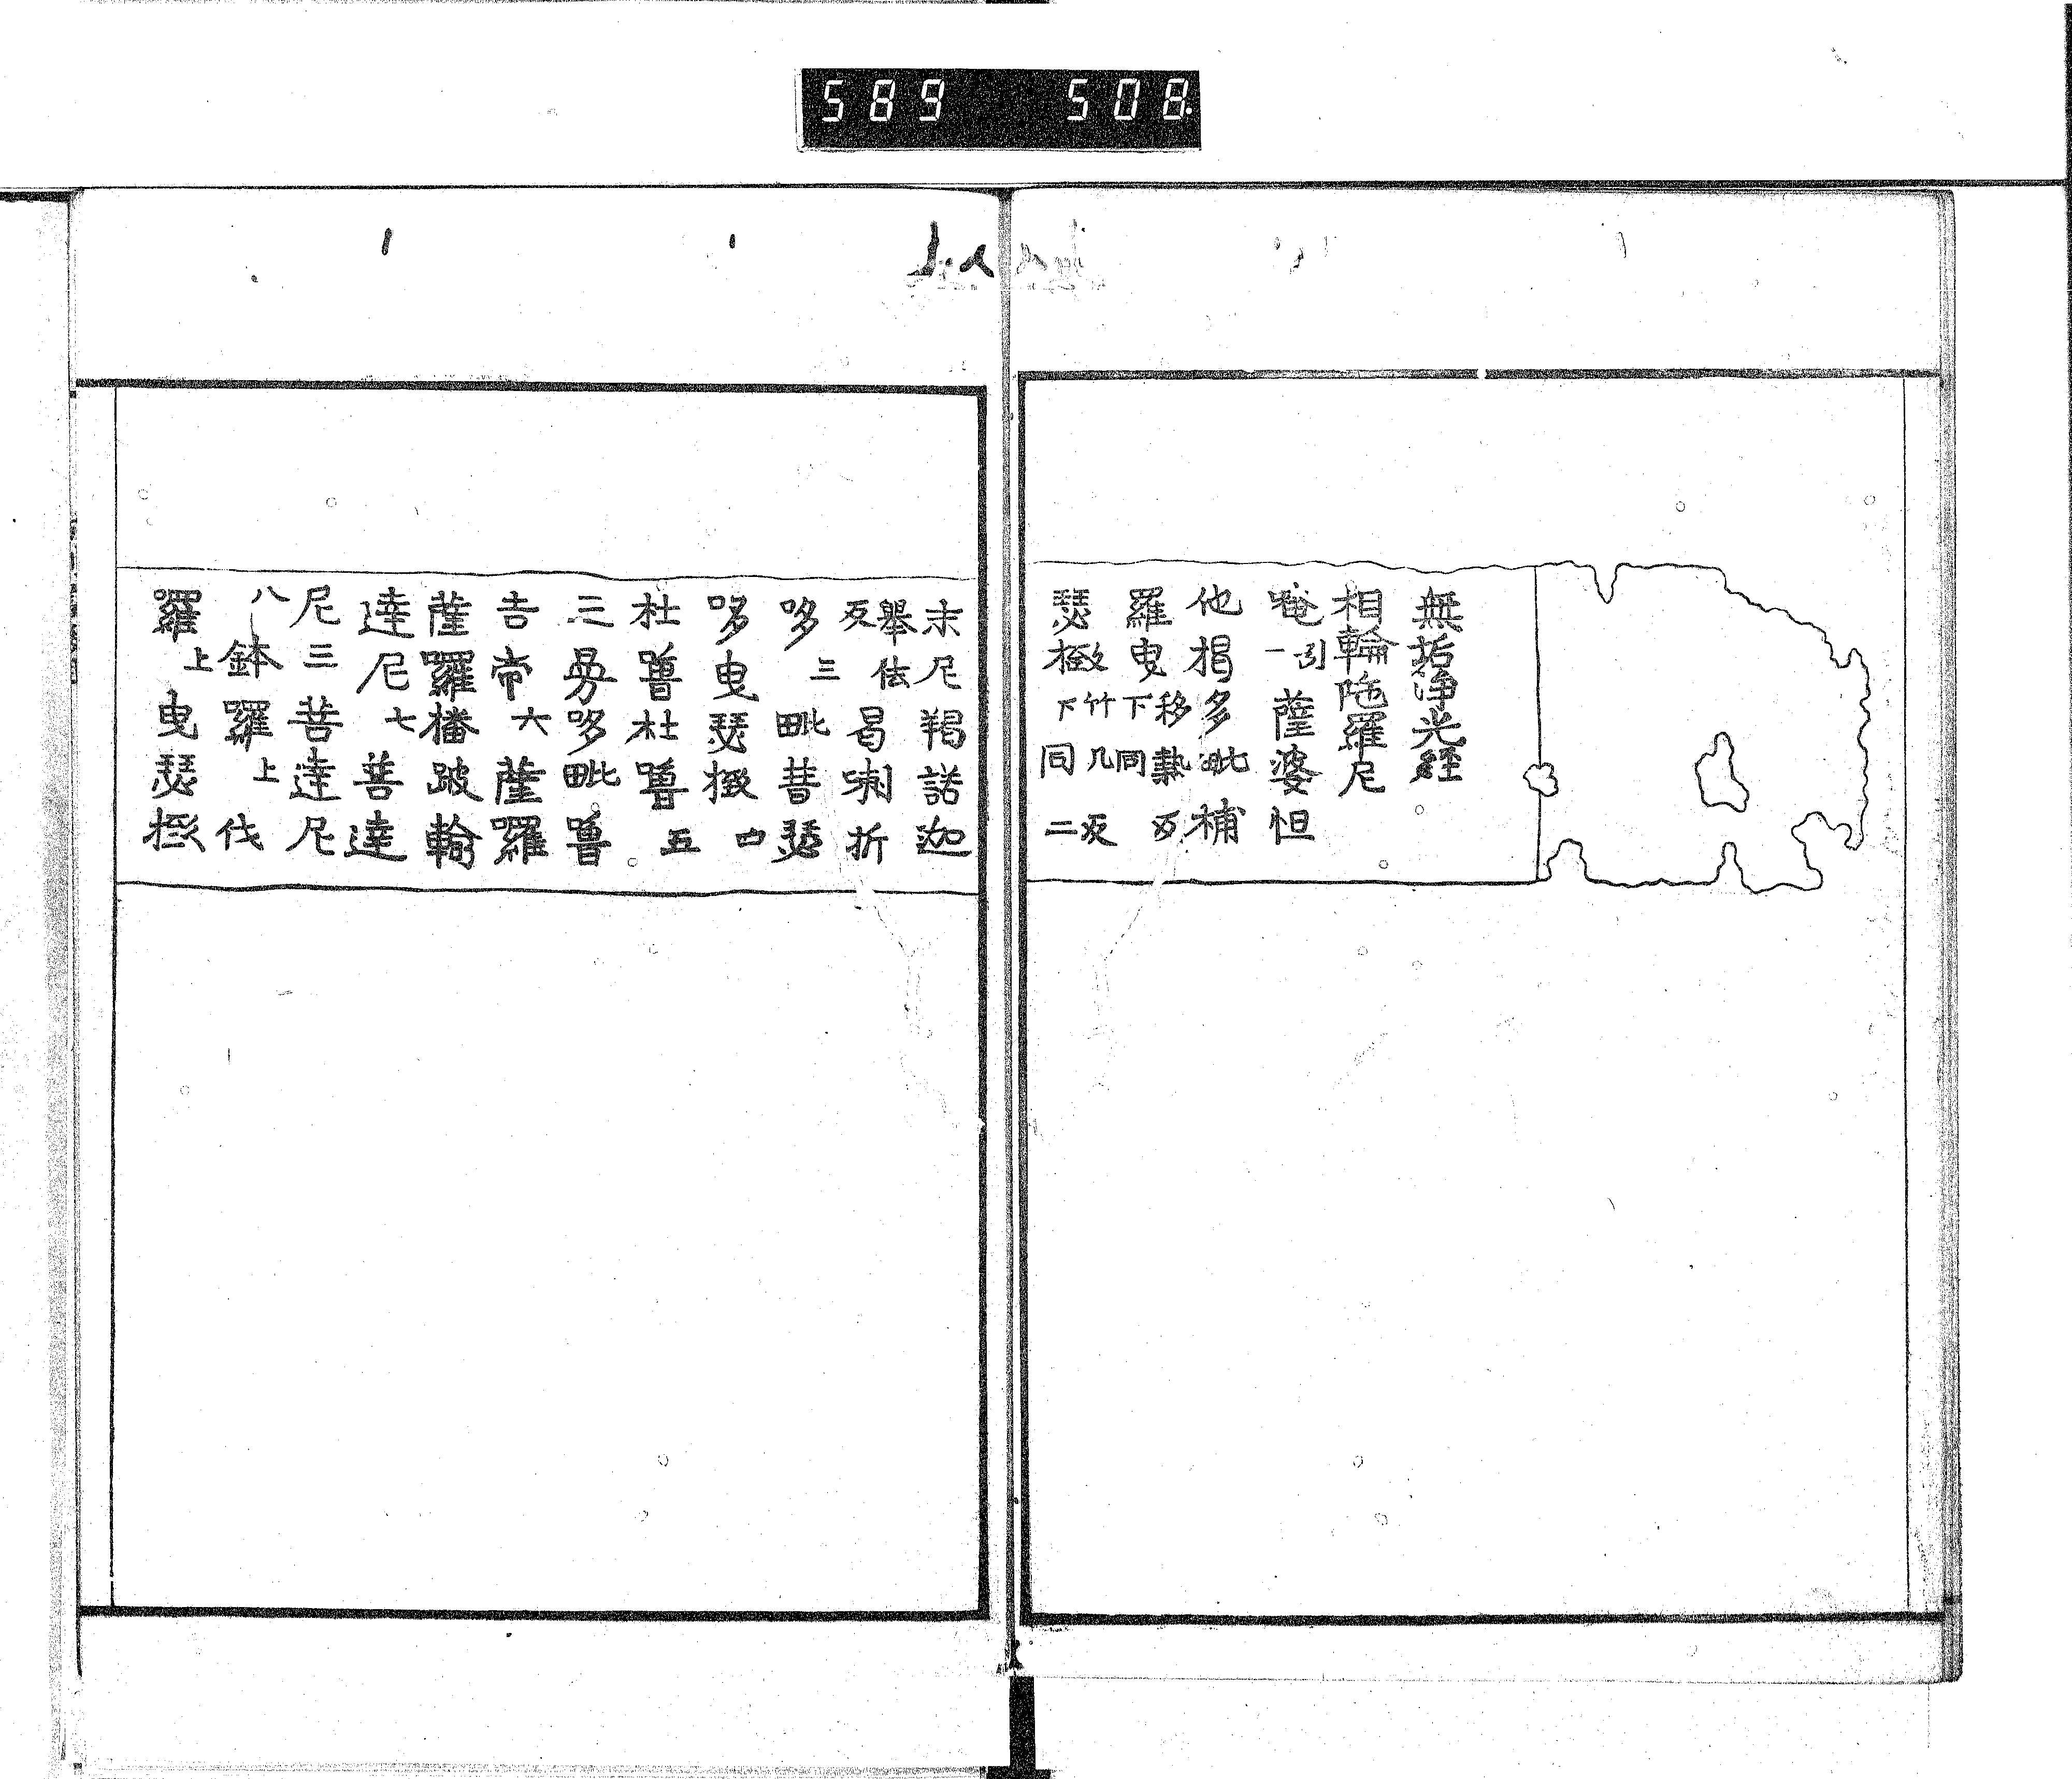 589 508
無垢浄光経
相輪陁羅尼
唵引一薩婆怛
他揭多毗補
羅曳移熱反下同
瑟㨖竹几反下同二
末尼羯諾迦
舉佉反曷喇折
哆三毗菩瑟
哆曳瑟㨖四
杜嚕杜嚕五
三曷哆毗嚕
吉帝六薩羅
薩羅播跛輸
達尼七菩達
尼三菩達尼
八鉢羅上伐
羅上曳瑟㨖